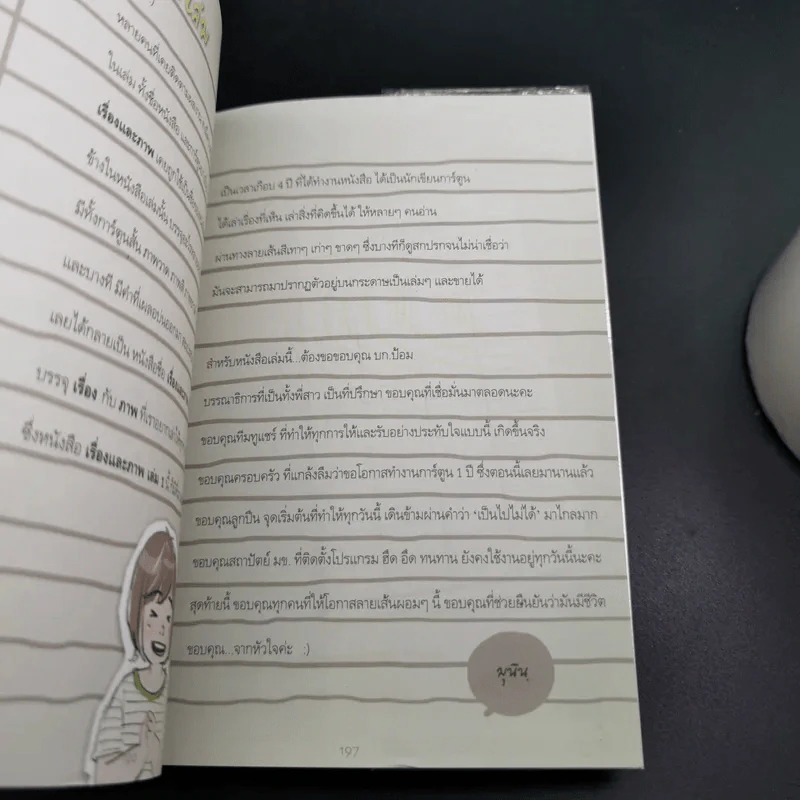 หลายคนที่เคยติดตาม
ในเล่ม ทั้งชื่อหนังสือ
เรื่องและภาพ เคยถูกใช้เป็น
ข้างในหนังสือเล่มนั้น บรรจุ
มีทั้งการ์ตูนสั้น ภาพวาด
และบางที มีคำที่เผลอบ่นออกมา
เลยได้กลายเป็น หนังสือชื่อ เรื่องและ
บรรจุ เรื่อง กับ ภาพ ที่เราอยากเล่า
ซึ่งหนังสือ เรื่องและภาพ เล่ม 1 นี้
เป็นเวลาเกือบ 4 ปี ที่ได้ทำงานหนังสือ ได้เป็นนักเขียนการ์ตูน
ได้เล่าเรื่องที่เห็น เล่าสิ่งที่คิดขึ้นได้ ให้หลายๆ คนอ่าน
ผ่านทางลายเส้นสีเทาๆ เก่าๆ ขาดๆ ซึ่งบางทีก็ดูสกปรกจนไม่น่าเชื่อว่า
มันจะสามารถมาปรากฏตัวอยู่บนกระดาษเป็นเล่มๆ และขายได้
สำหรับหนังสือเล่มนี้...ต้องขอขอบคุณ บก.ป้อม
บรรณาธิการที่เป็นทั้งพี่สาว เป็นที่ปรึกษา ขอบคุณที่เชื่อมั่นมาตลอดนะคะ
ขอบคุณทีมทูแชร์ ที่ทำให้ทุกการให้และรับอย่างประทับใจแบบนี้ เกิดขึ้นจริง
ขอบคุณครอบครัว ที่แกล้งลืมว่าขอโอกาสทำงานการ์ตูน 1 ปี ซึ่งตอนนี้เลยมานานแล้ว
ขอบคุณลูกปิน จุดเริ่มต้นที่ทำให้ทุกวันนี้ เดินข้ามผ่านคำว่า "เป็นไปไม่ได้" มาไกลมาก
ขอบคุณสถาปัตย์ มข. ที่ติดตั้งโปรแกรม ฮึด อึด ทนทาน ยังคงใช้งานอยู่ทุกวันนี้นะคะ
สุดท้ายนี้ ขอบคุณทุกคนที่ให้โอกาสลายเส้นผอมๆ นี้ ขอบคุณที่ช่วยยืนยันว่ามันมีชีวิต
ขอบคุณ...จากหัวใจค่ะ :)
มุนินฺ
197